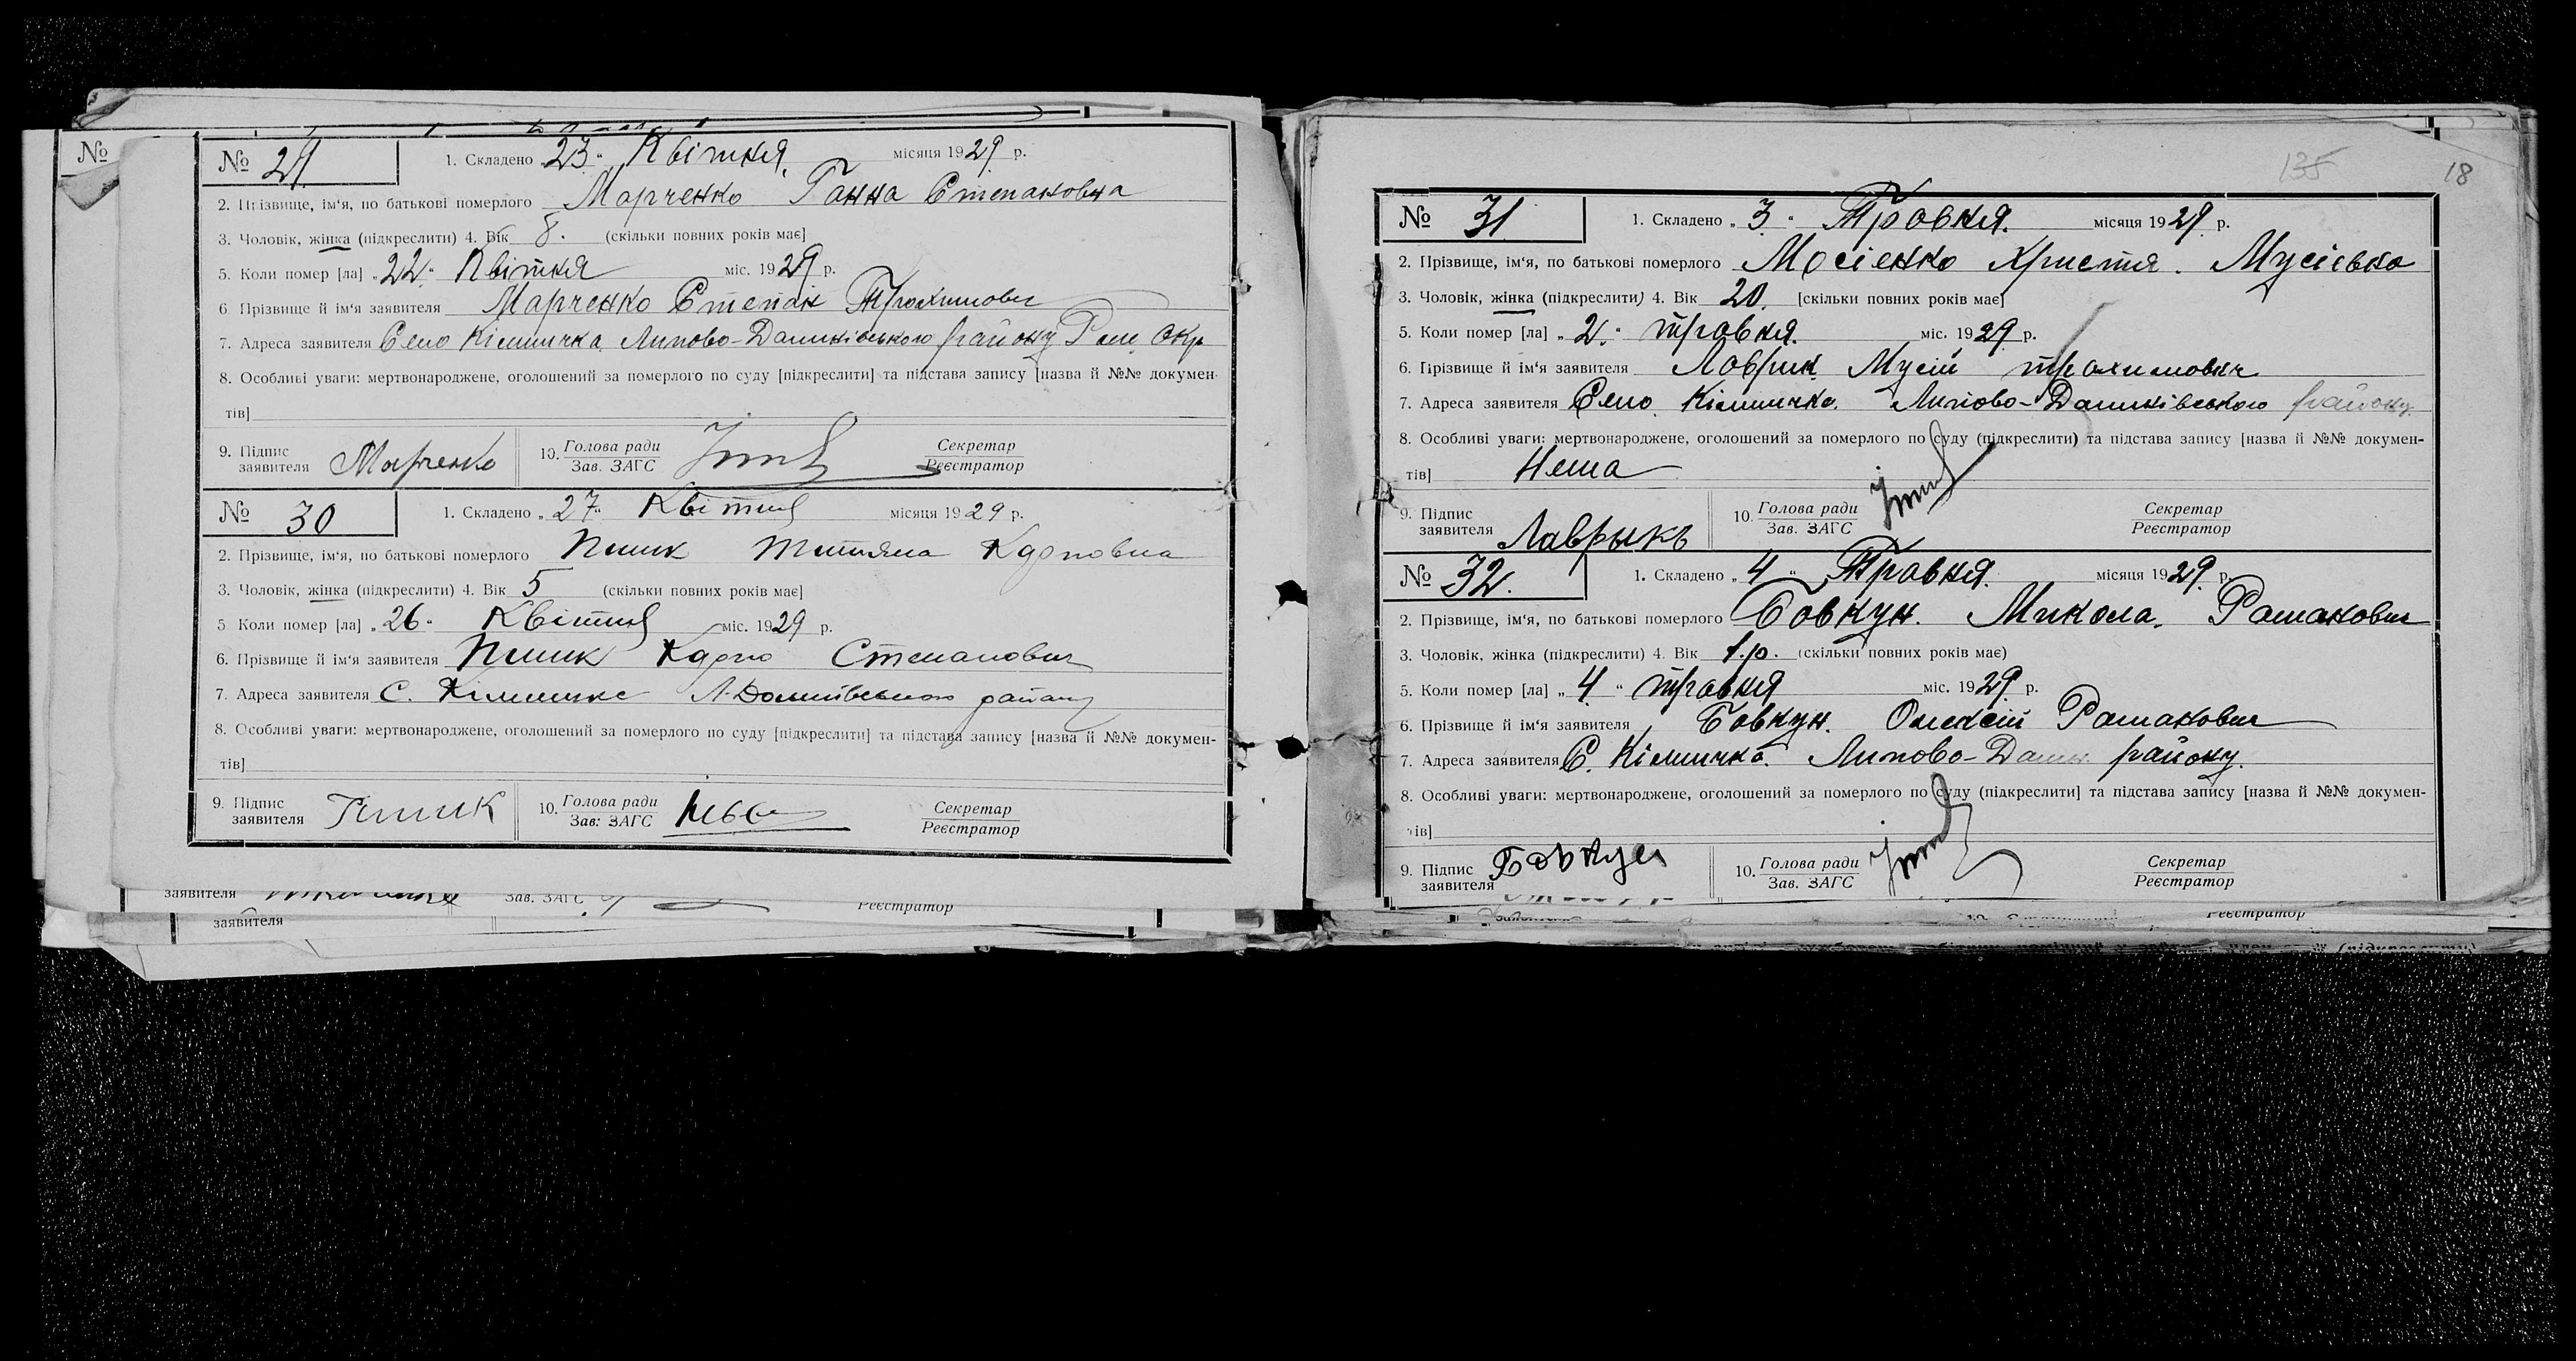 №
№ 29
1. Складено „23“ Квітня місяця 1929 р.
2. Прізвище, ім'я, по батькові померлого Марченко Ганна Степановна
3. Чоловік, жінка (підкреслити) 4. Вік 8. (скільки повних років має]
5. Коли помер [ла] „22“ Квітня міс. 1929 р.
6 Прізвище й ім'я заявителя Марченко Степан Трохимович
7. Адреса заявителя Село Кімличка Липово-Долинського району Ром. Окр.
8. Особливі уваги: мертвонароджене, оголошений за померлого по суду [підкреслити] та підстава запису [назва й №№ докумен-
тів]
9. Підпис заявителя Марченко 10. Голова ради Зав. ЗАГС Секретар Реєстратор
№ 30
1. Складено „27“ Квітня місяця 1929 р.
2. Прізвище, ім'я, по батькові померлого Тетяна
3. Чоловік, жінка (підкреслити) 4. Вік 5 (скільки повних років має]
5 Коли помер [ла] „26“ Квітня міс. 1929 р.
6. Прізвище й ім'я заявителя Степанович
7. Адреса заявителя С. Л. Долинського району
8. Особливі уваги: мертвонароджене, оголошений за померлого по суду [підкреслити] та підстава запису [назва й №№ докумен-
тів]
9. Підпис заявителя 10. Голова ради Зав: ЗАГС Секретар Реєстратор
заявителя Зав. ЗАГС Реєстратор
заявителя
135 18
№ 31
1. Складено „3“ Травня. місяця 1929 р.
2. Прізвище, ім'я, по батькові померлого Мосієнко Христя. Мусіївна
3. Чоловік, жінка (підкреслити) 4. Вік 20. [скільки повних років має]
5. Коли помер [ла] „2“ травня. міс. 1929 р.
6. Прізвище й ім'я заявителя Лаврик Мусій трохимович
7. Адреса заявителя Село Кімличка. Липово-Долинського району
8. Особливі уваги: мертвонароджене, оголошений за померлого по суду (підкреслити) та підстава запису [назва й №№ докумен-
тів] Нема
9. Підпис заявителя Лаврыкъ 10. Голова ради Зав. ЗАГС Секретар Реєстратор
№ 32.
1. Складено „4“ Травня. місяця 1929 р.
2. Прізвище, ім'я, по батькові померлого Бовкун. Микола. Романович
3. Чоловік, жінка (підкреслити) 4. Вік 1.р. (скільки повних років має)
5. Коли помер [ла] „4“ травня міс. 1929 р.
6. Прізвище й ім'я заявителя Бовкун. Олексій Романович
7. Адреса заявителя С. Кімличка. Липово-Долин. району.
8. Особливі уваги: мертвонароджене, оголошений за померлого по суду (підкреслити] та підстава запису [назва й №№ докумен-
тів]
9. Підпис заявителя Бовкун 10. Голова ради Зав. ЗАГС Секретар Реєстратор
Реєстратор